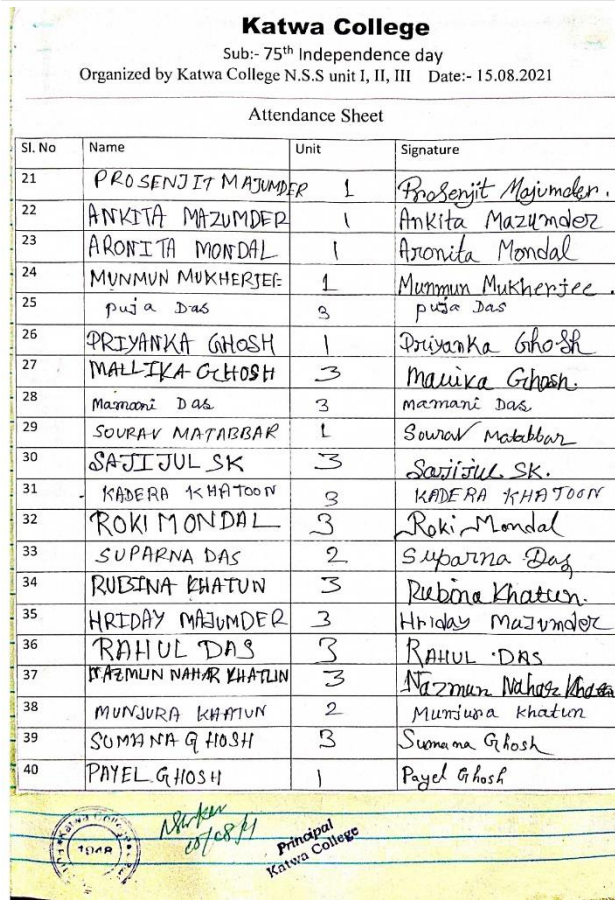 Katwa College
Sub:- 75th Independence day
Organized by Katwa College N.S.S unit I, II, III Date:- 15.08.2021
Attendance Sheet
Sl. No Name Unit Signature
21 PROSENJIT MAJUMDER 1 Prosenjit Majumder.
22 ANKITA MAZUMDER 1 Ankita Mazumder
23 ARONITA MONDAL 1 Aronita Mondal
24 MUNMUN MUKHERJEE 1 Munmun Mukherjee.
25 puja Das 3 puja Das
26 PRIYANKA GHOSH 1 Priyanka Ghosh
27 MALLIKA GHOSH 3 Mallika Ghosh.
28 Mamani Das 3 mamani Das
29 SOURAV MATABBAR 1 Sourav Matabbar
30 SAJIJUL SK 3 Sajijul SK.
31 KADERA KHATOON 3 KADERA KHATOON
32 ROKI MONDAL 3 Roki Mondal
33 SUPARNA DAS 2 Suparna Das
34 RUBINA KHATUN 3 Rubina Khatun.
35 HRIDAY MAJUMDER 3 Hriday Majumder
36 RAHUL DAS 3 RAHUL DAS
37 NAZMUN NAHAR KHATUN 3 Nazmun Nahar
38 MUNJURA KHATUN 2 Munjura khatun
39 SUMANA GHOSH 3 Sumana Ghosh
40 PAYEL GHOSH 1 Payel Ghosh
Katwa College
1948
Principal
Katwa College